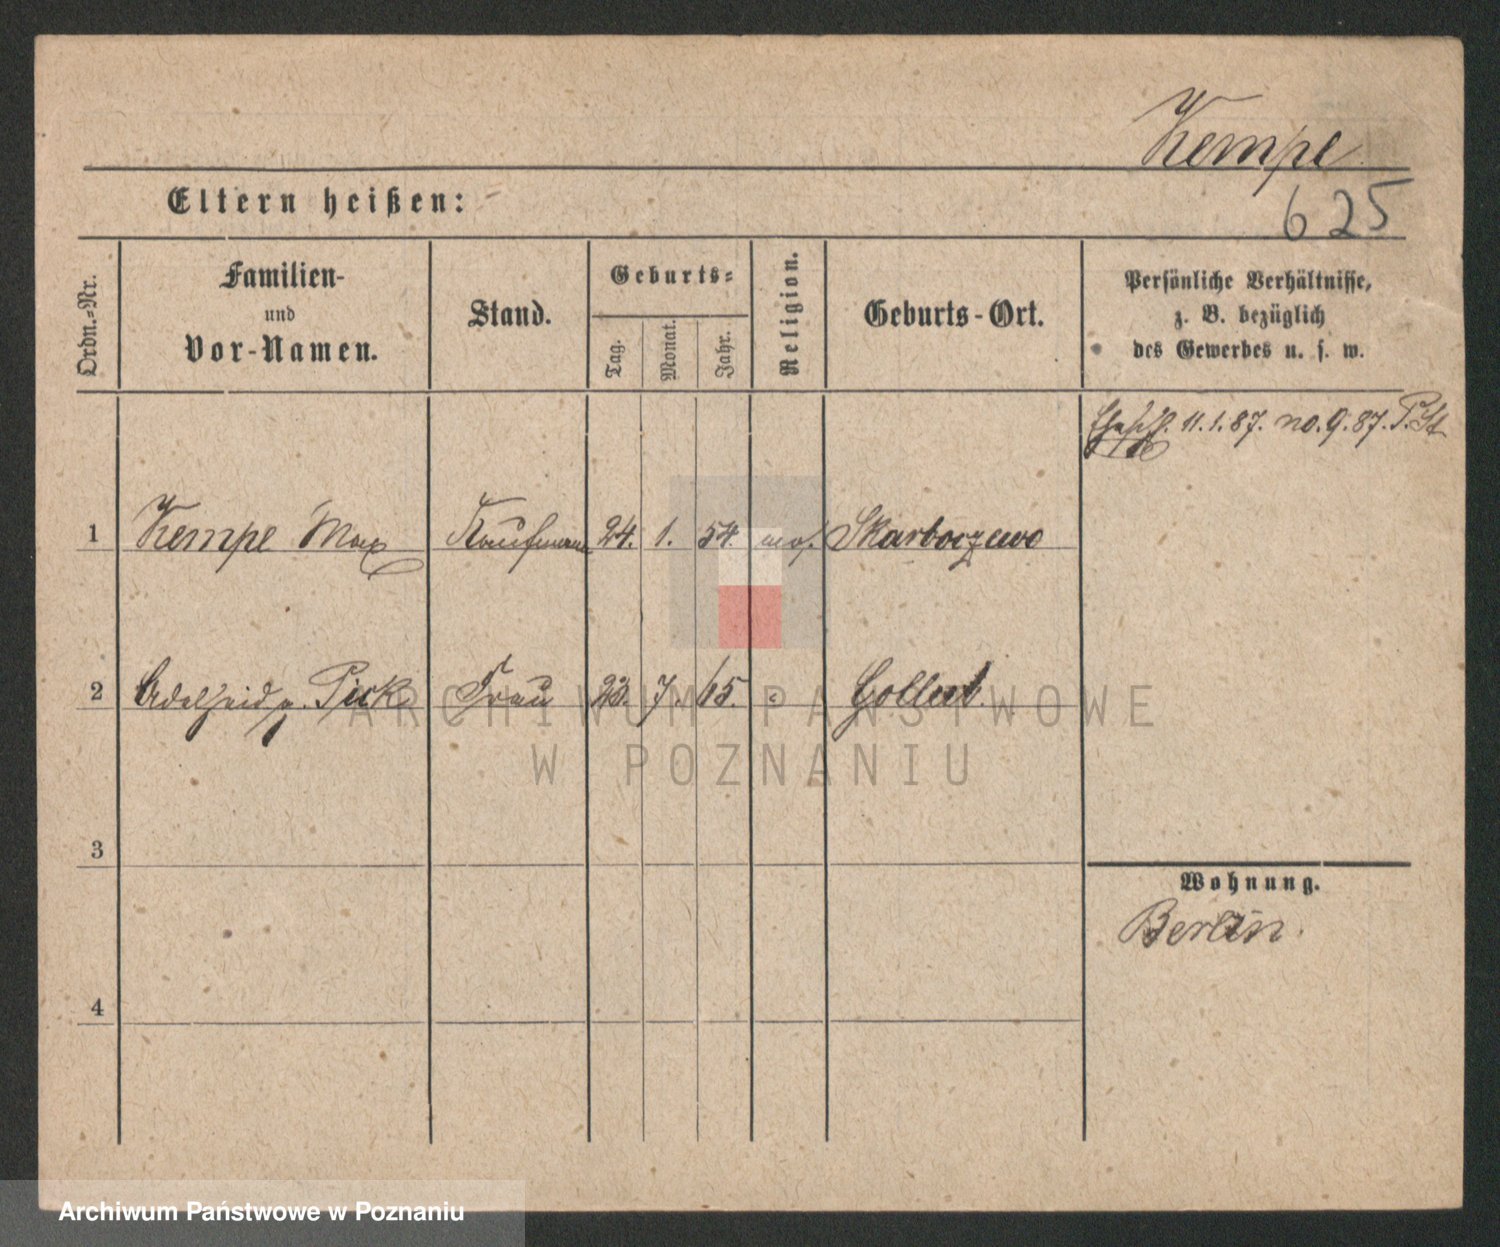 Kempe
625
Eltern heißen:
Ordn.-Nr.
Familien-
und
Vor-Namen.
Stand.
Geburts-
Tag.
Monat.
Jahr.
Religion.
Geburts-Ort.
Persönliche Verhältnisse,
z. B. bezüglich
des Gewerbes u. s. w.
11.1.87. no. 9. 87. P. St
1 Kempe Max Kaufmann 24. 1. 54. mos. Skarboczewo
2 Adelheid g. Pick Frau 23. 7. 65. Gollub.
3
4
Wohnung.
Berlin.
ARCHIWUM PAŃSTWOWE
W POZNANIU
Archiwum Państwowe w Poznaniu